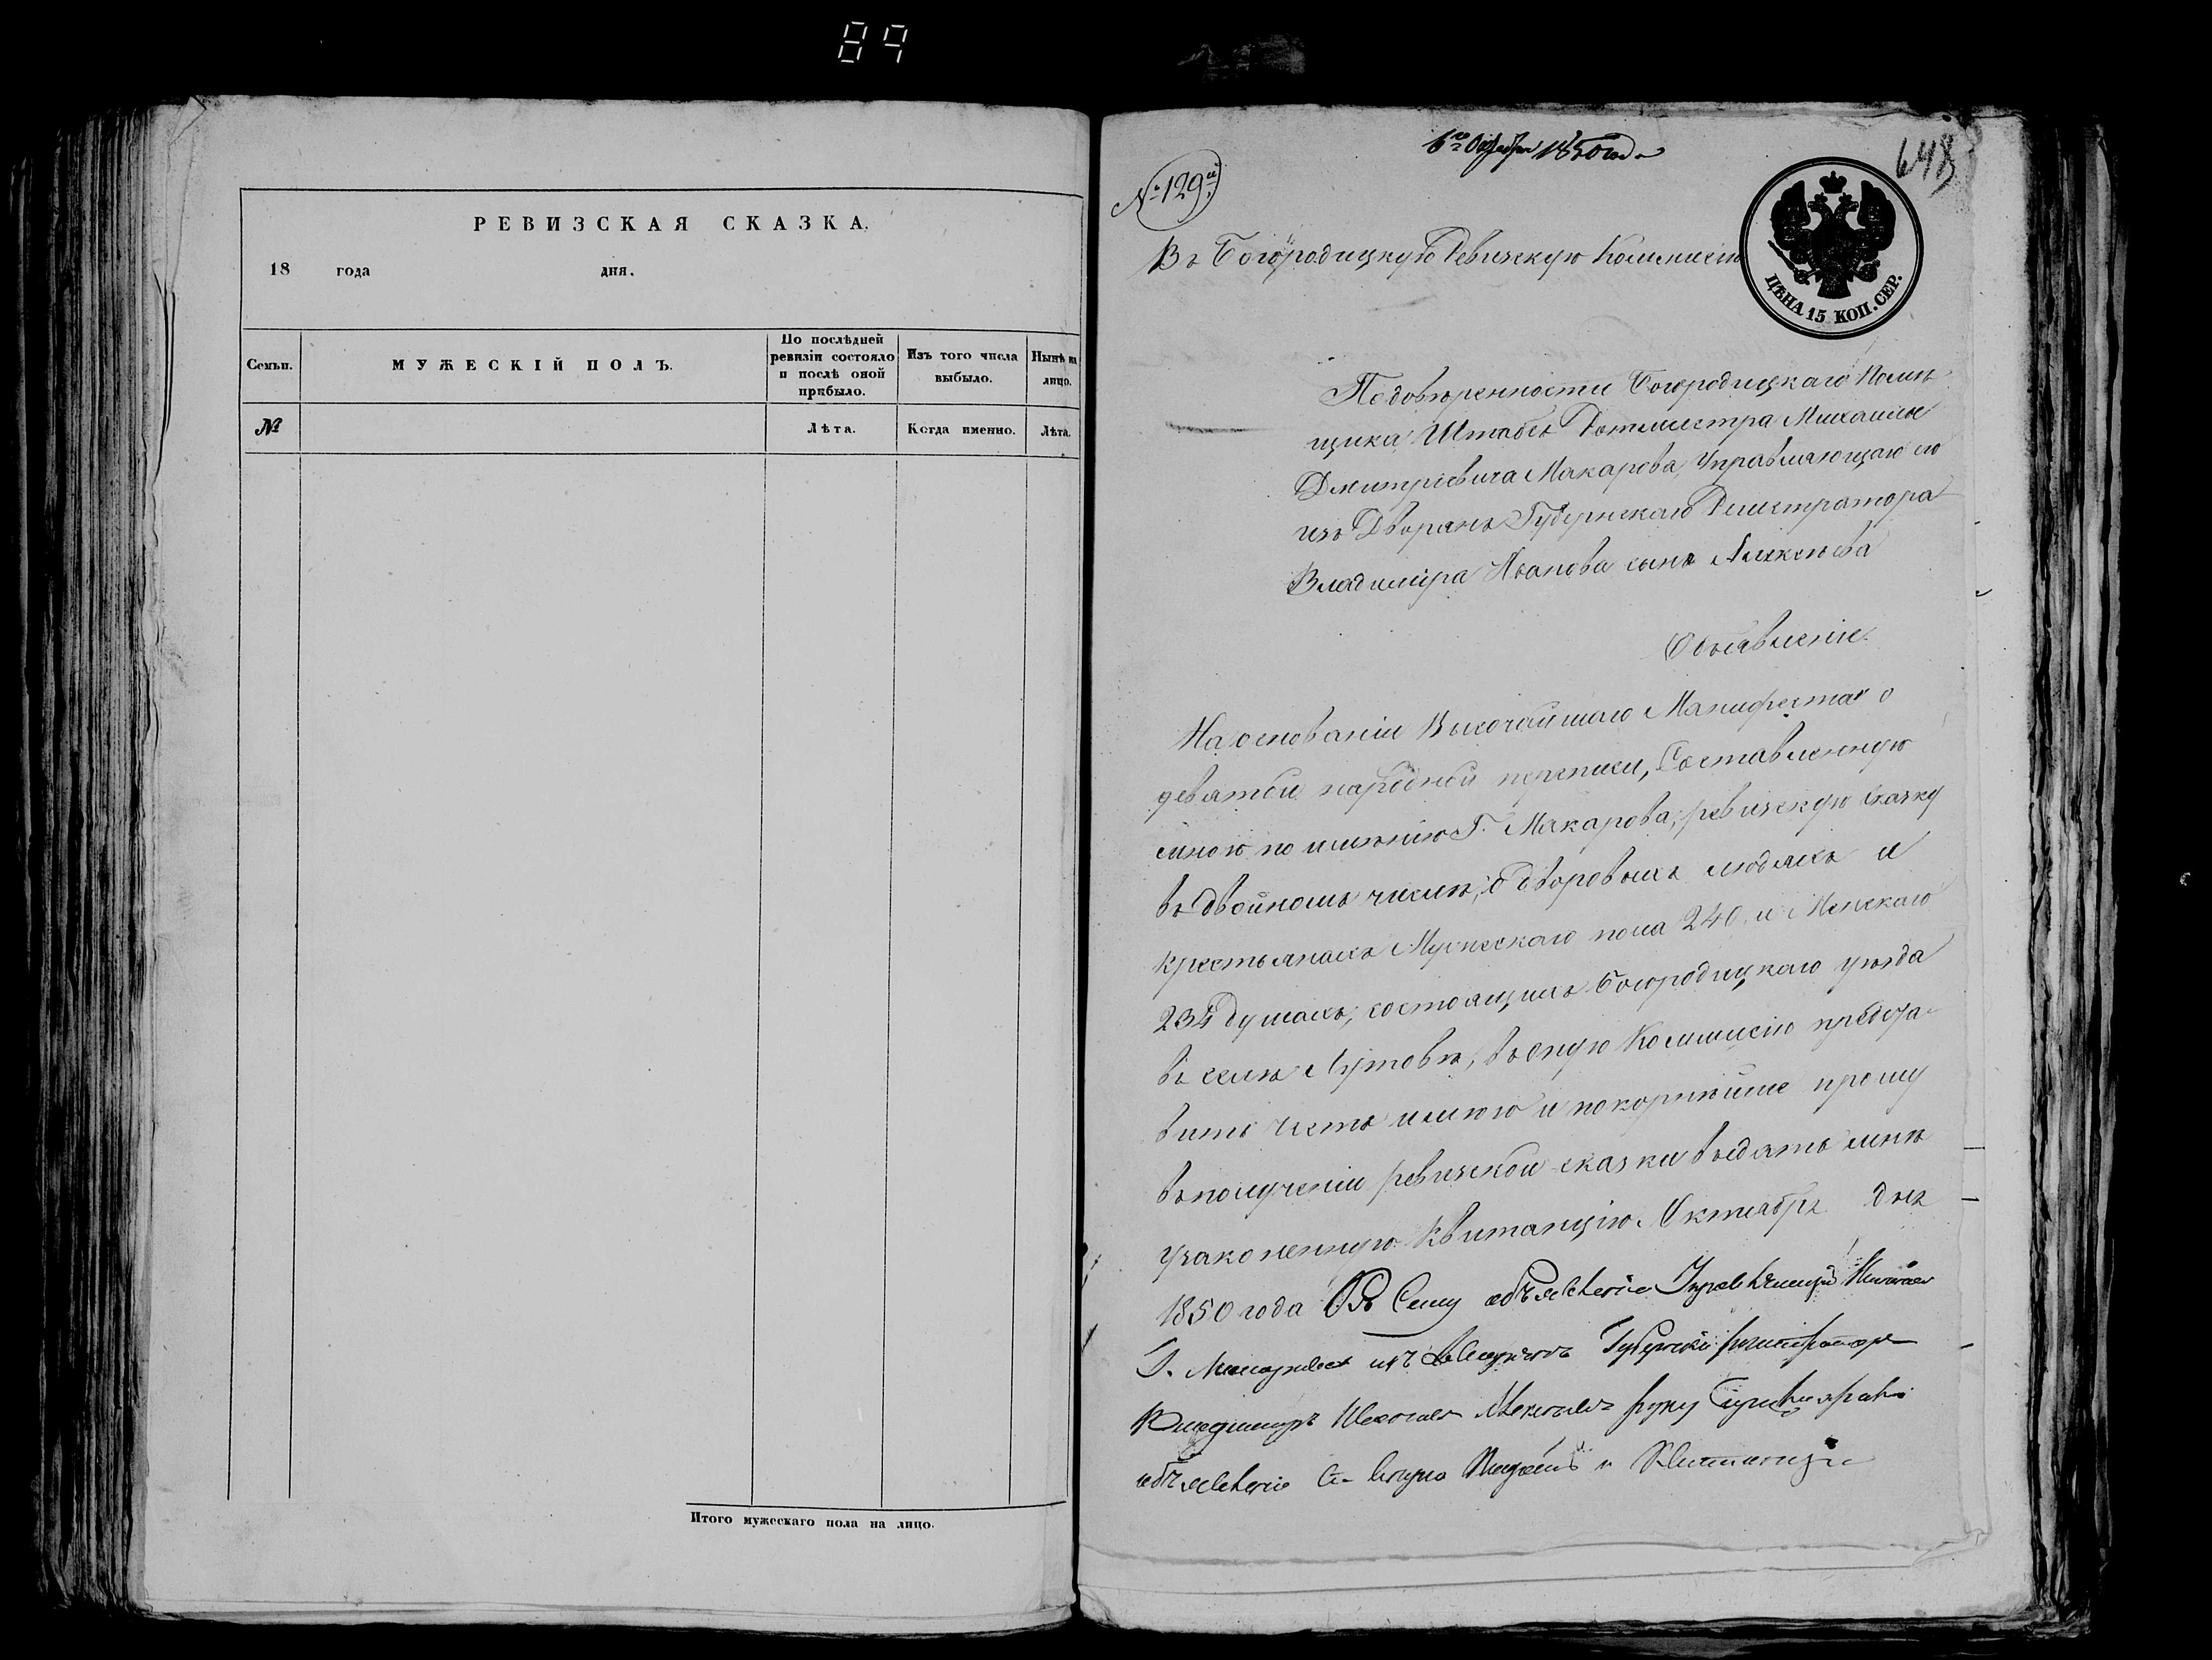 89
РЕВИЗСКАЯ СКАЗКА.
18 года дня.
Семьи.
МУЖЕСКІЙ ПОЛЪ.
По послѣдней
ревизіи состояло
и послѣ оной
прибыло.
Изъ того числа
выбыло.
Нынѣ на
лицо.
№
Лѣта.
Когда именно.
Лѣта.
Итого мужескаго пола на лицо.
6го Октября 1850 года
648
№ 129й
Въ Богородицкую Ревизскую Комисію
ЦѢНА 15 КОП. СЕР.
По довѣренности Богородицкаго Помѣ
щика Штабсъ Ротмистра Михаилы
Дмитріевича Макарова, Управляющаго его
изъ Дворянъ Губернскаго Регистратора
Владиміра Иванова сына Алексѣева
Объявленіе.
На основаніи Высочайшаго Манифеста о
девятой народной переписи, Составленную
мною по имѣнію Г. Макарова, ревизскую сказку
въ двойномъ числѣ, о дворовыхъ людяхъ и
крестьянахъ Мужескаго пола 240. и Женскаго
234 душахъ, состоящихъ Богородицкаго уѣзда
въ селѣ Лутовѣ, въ оную Коммисію предста
вить честь имѣю и покорнѣйше прошу
въ полученіи ревизской сказки выдать мнѣ
узаконенную Квитанцію. Октября дня
1850 года Къ Сему объявленію
Г. Макарова изъ Губернскій регистраторъ
Владимиръ Ивановъ Алексѣевъ руку приложилъ
объявленіе и Квитанцію